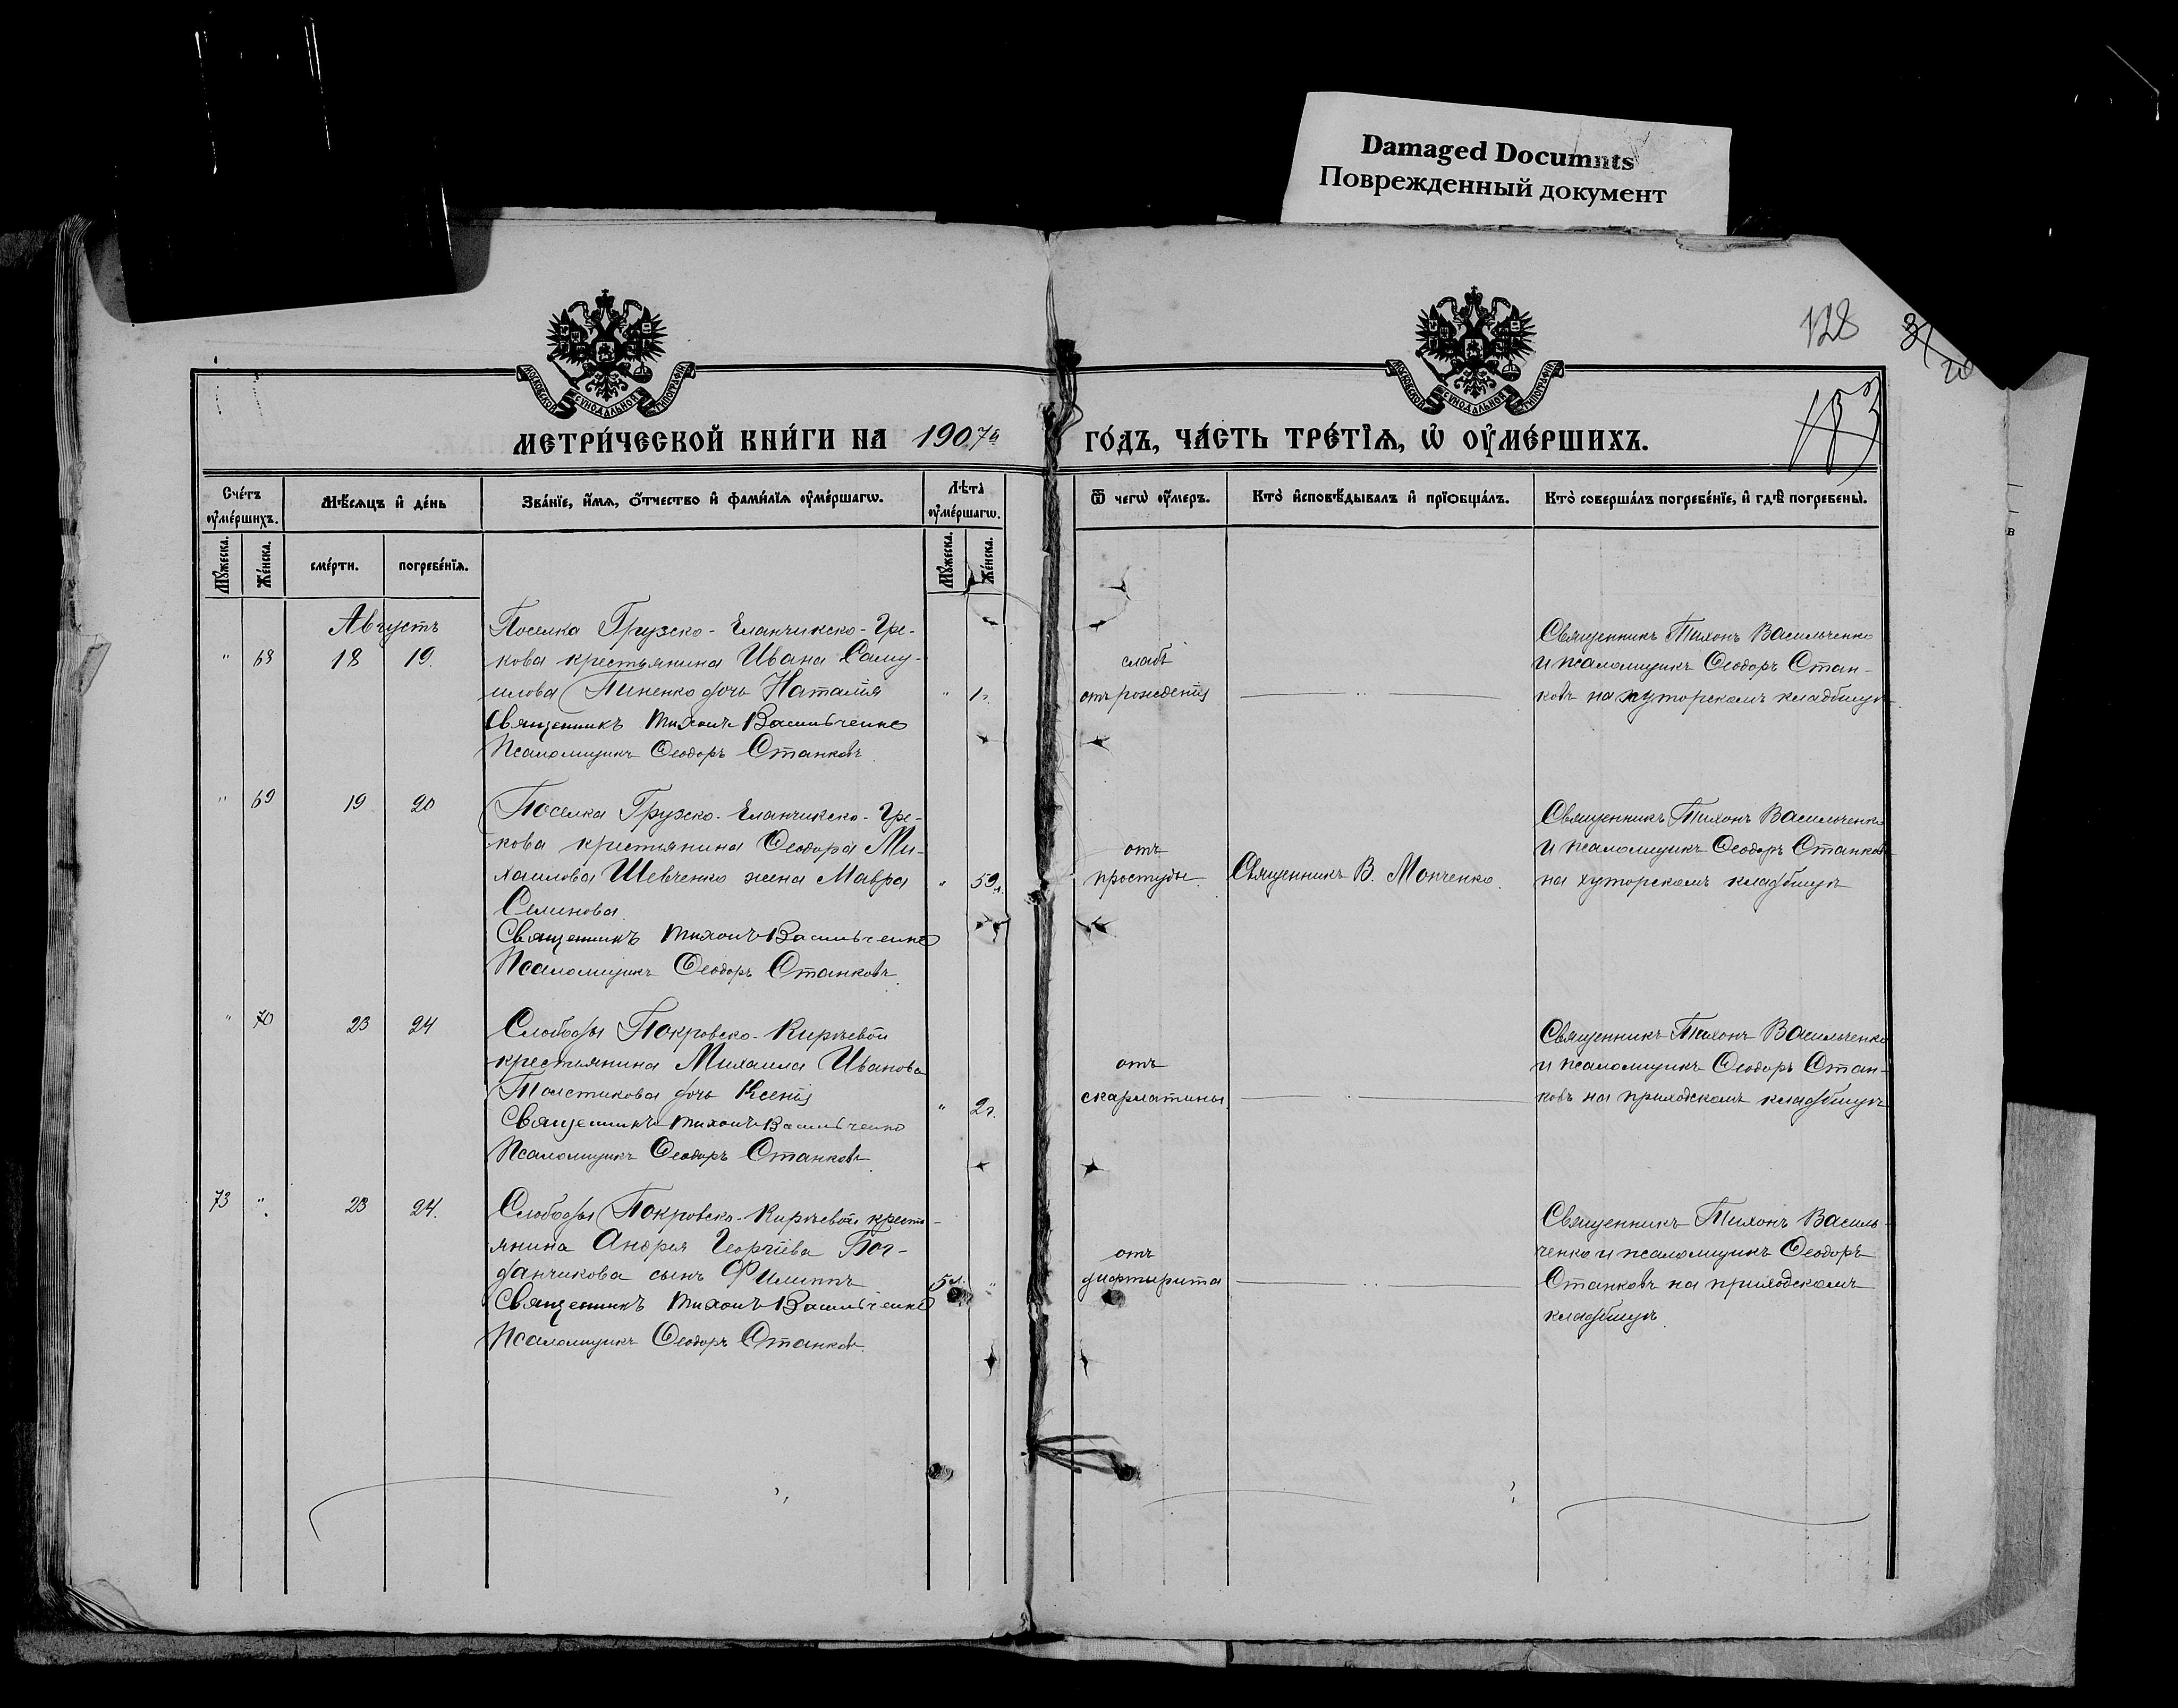 Damaged Documnts
Поврежденный документ
128
183
МОСКОВСКОЙ СѴНОДАЛЬНОЙ ТИПОГРАФІИ
МОСКОВСКОЙ СѴНОДАЛЬНОЙ ТИПОГРАФІИ
МЕТРИ́ЧЕСКОЙ КНИ́ГИ НА 1907й ГО́ДЪ, ЧА́СТЬ ТРЕ́ТІѦ, Ѡ҆ ОУ҆МЕ́РШИХЪ.
Сче́тъ оу҆ме́ршихъ.
Мѣ́сяцъ и҆ де́нь
Зва́нїе, и҆́мѧ, ѻ҆́тчество и҆ фами́лїѧ оу҆ме́ршагѡ.
Лѣ̀та оу҆ме́ршагѡ.
Ѿ чегѡ̀ оу҆́меръ.
Кто̀ и҆сповѣ́дывалъ и҆ прїѻбща́лъ.
Кто̀ соверша́лъ погребе́нїе, и҆ гдѣ̀ погребены̀.
Мꙋ́жеска.
Же́нска.
сме́рти.
погребе́нїѧ.
Мꙋ́жеска.
Же́нска.
Августъ
" 68 18 19.
Поселка Грузско-Еланчикско-Гре-
кова крестьянина Ивана Саму-
илова Пиненко дочь Наталія " 1г.
Священникъ Тихонъ Васильченко
Псаломщикъ Ѳеодоръ Станковъ.
слаба
отъ рожденія
Священникъ Тихонъ Васильченко
и псаломщикъ Ѳеодоръ Стан-
ковъ на хуторскомъ кладбищѣ.
" 69 19 20
Поселка Грузско-Еланчикско-Гре-
кова крестьянина Ѳеодора Ми-
хаилова Шевченко жена Мавра " 59л.
Семинова.
Священникъ Тихонъ Васильченко
Псаломщикъ Ѳеодоръ Станковъ.
отъ
простуды.
Священникъ В. Монченко.
Священникъ Тихонъ Васильченко
и псаломщикъ Ѳеодоръ Станковъ
на хуторскомъ кладбищѣ
" 70 23 24
Слободы Покровско-Кирѣевой
крестьянина Михаила Иванова
Толстикова дочь Ксенія " 2г.
Священникъ Тихонъ Васильченко
Псаломщикъ Ѳеодоръ Станковъ.
отъ
скарлатины.
Священникъ Тихонъ Васильченко
и псаломщикъ Ѳеодоръ Стан-
ковъ на приходскомъ кладбищѣ
73 " 23 24.
Слободы Покровско-Кирѣевой кресть-
янина Андрея Георгіева Бог-
данчикова сынъ Филиппъ 5л. "
Священникъ Тихонъ Васильченко
Псаломщикъ Ѳеодоръ Станковъ.
отъ
дифтерита
Священникъ Тихонъ Василь-
ченко и псаломщикъ Ѳеодоръ
Станковъ на приходскомъ
кладбищѣ.